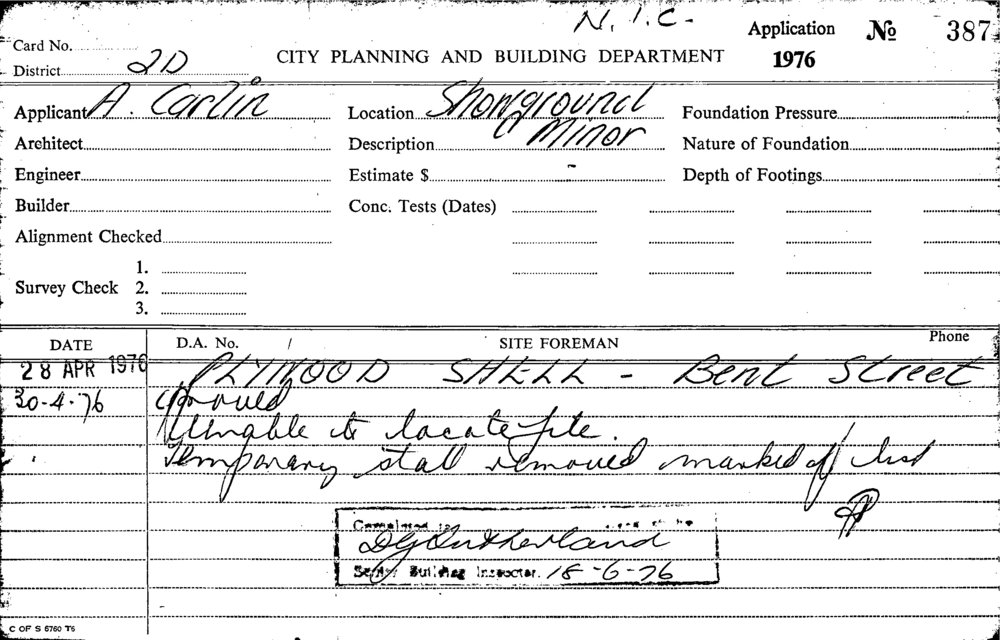 N.I.C.
Card No.
District 2D
CITY PLANNING AND BUILDING DEPARTMENT
Application № 387
1976
Applicant A. Carlin
Location Showground
Foundation Pressure
Architect
Description Minor
Nature of Foundation
Engineer
Estimate $ -
Depth of Footings
Builder
Conc. Tests (Dates)
Alignment Checked
Survey Check
1.
2.
3.
DATE
D.A. No. /
SITE FOREMAN
Phone
28 APR 1976 PLYWOOD SHELL - Bent Street
30-4-76 approved
Unable to locate file.
Temporary stall removed marked off list
Completed
D G Sutherland
Senior Building Inspector. 18-6-76
C OF S 5760 T5